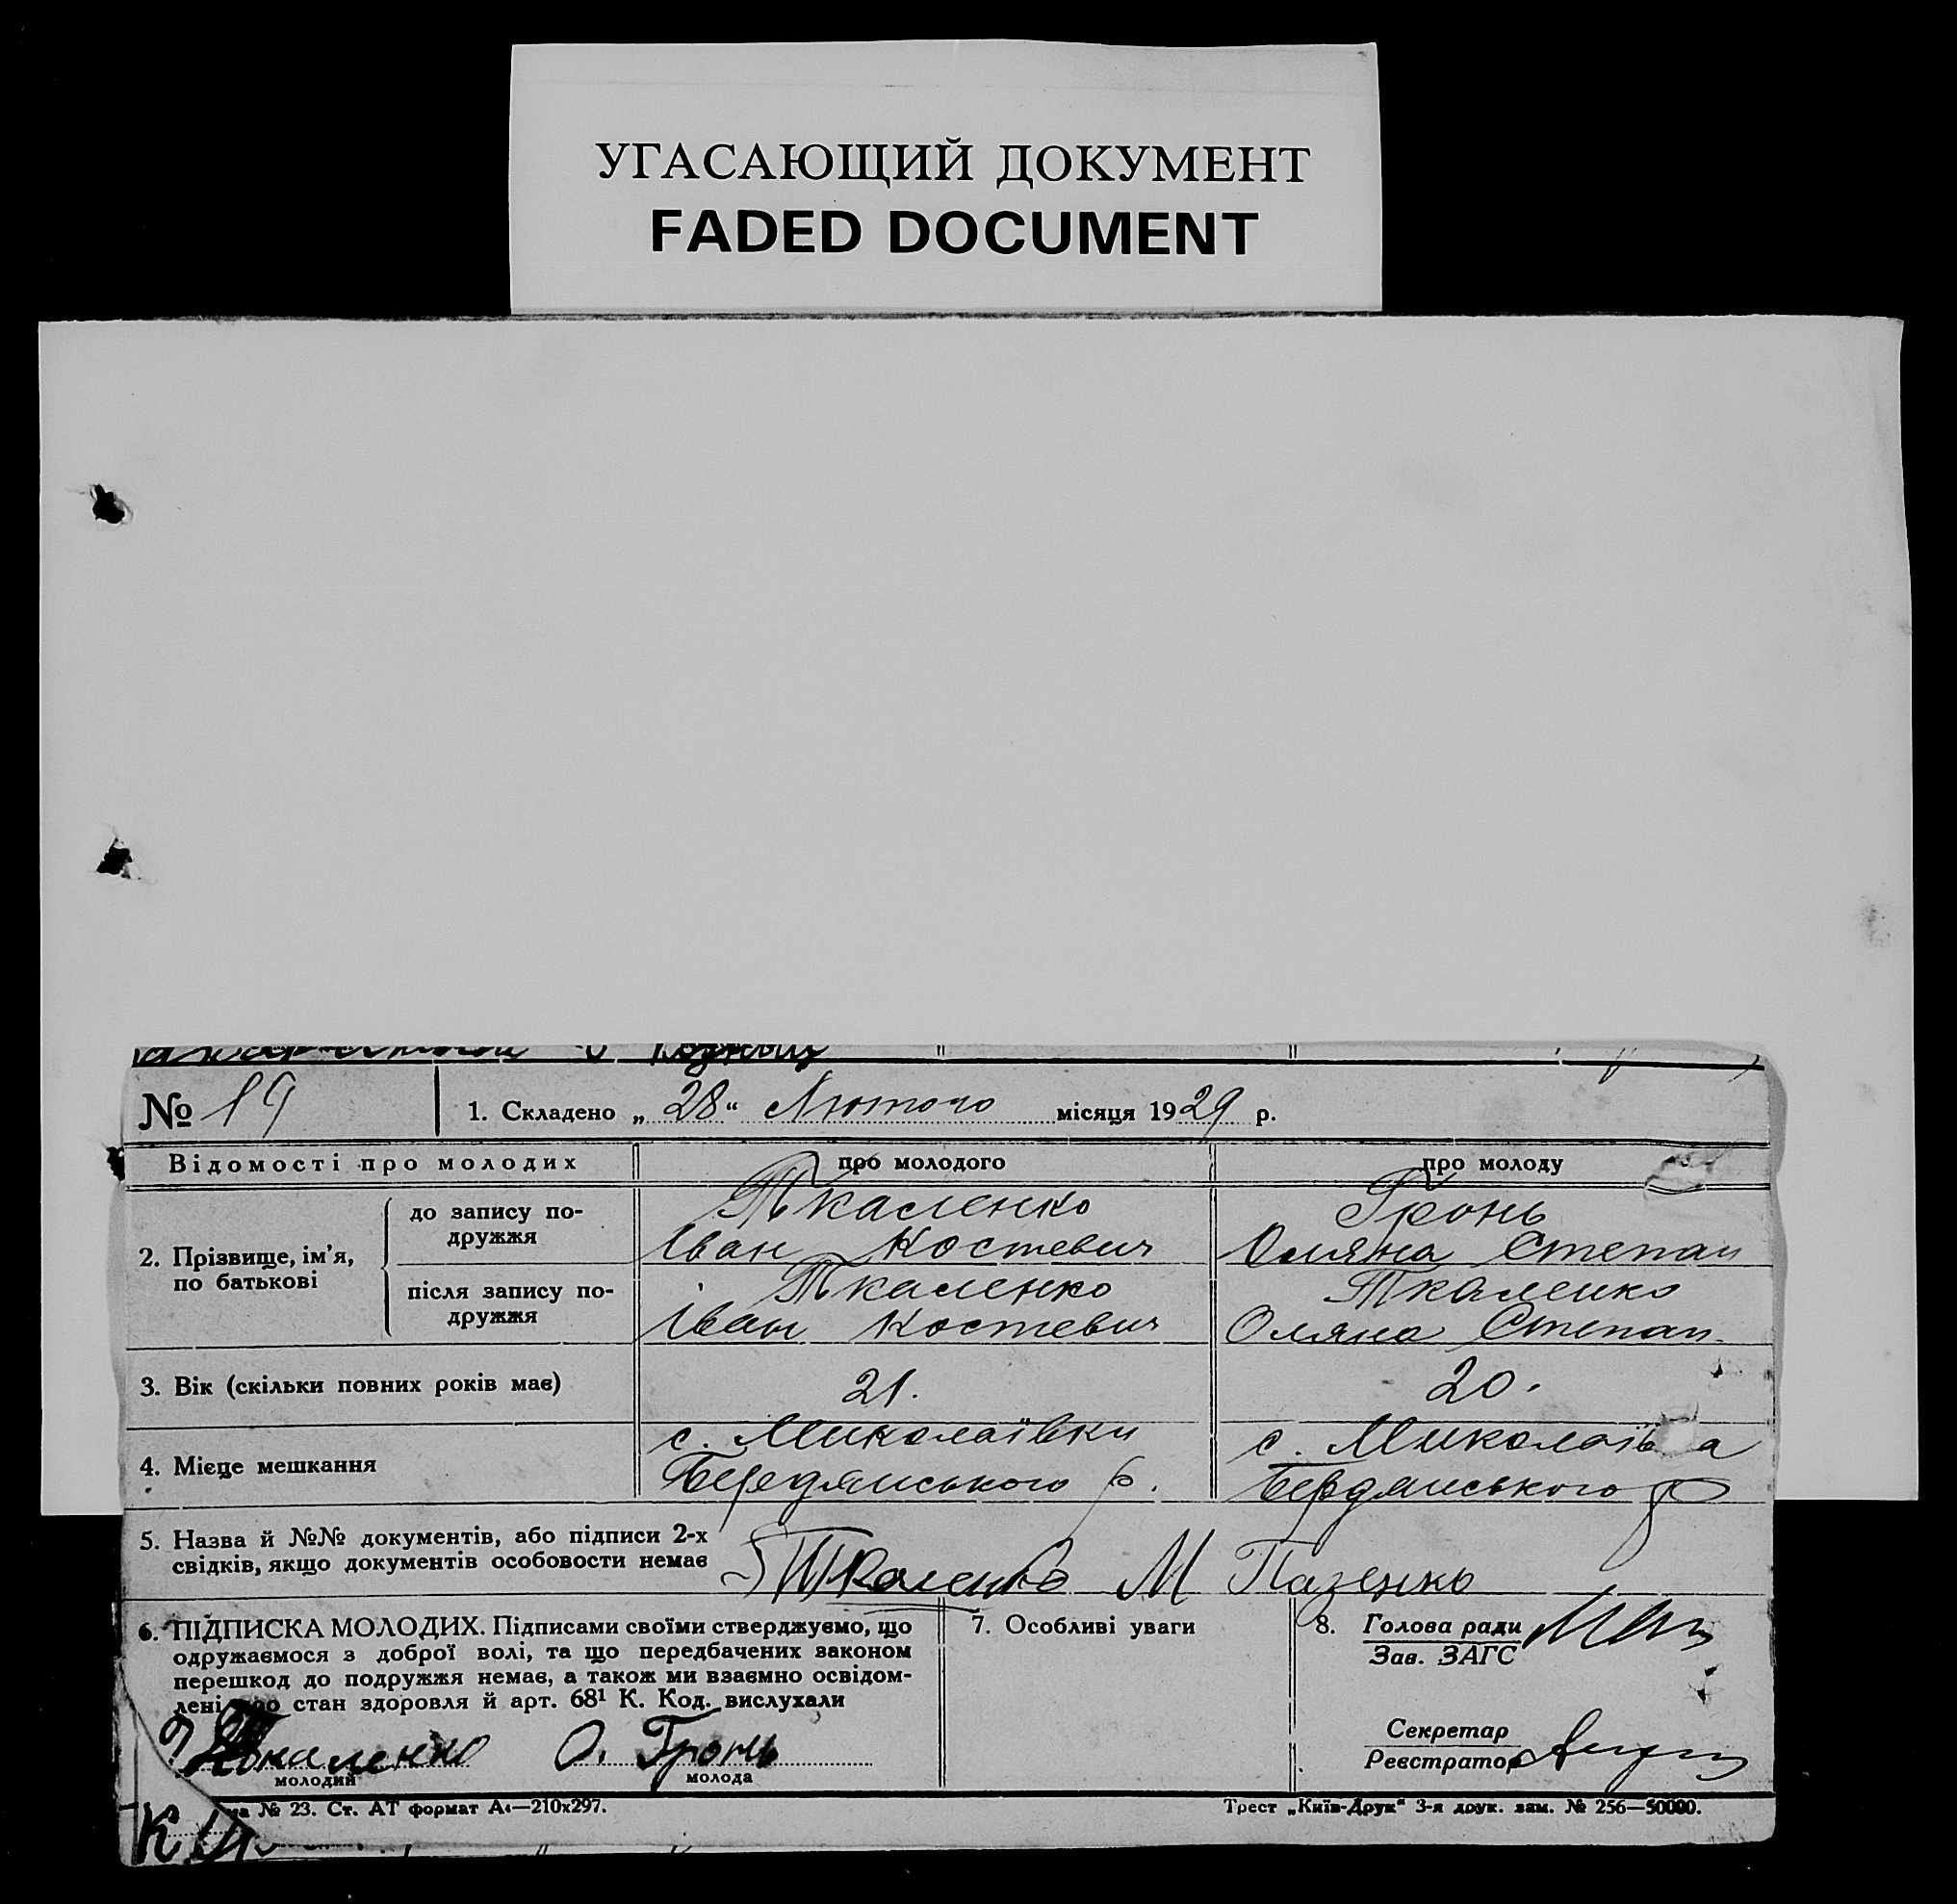 УГАСАЮЩИЙ ДОКУМЕНТ
FADED DOCUMENT
№ 19
1. Складено „28“ Лютого місяця 1929 р.
Відомості про молодих
про молодого
про молоду
2. Прізвище, ім'я, по батькові
до запису по-
дружжя
Ткаленко
Іван Костевич
Гронь
Оляна Степан
після запису по-
дружжя
Ткаленко
Іван Костевич
Ткаленко
Оляна Степан
3. Вік (скільки повних років має)
21.
20.
4. Місце мешкання
с. Миколаївки
Бердянського р.
с. Миколаїв а
Бердянського р
5. Назва й №№ документів, або підписи 2-х
свідків, якщо документів особовости немає
Ткаленко М Пазенко
6. ПІДПИСКА МОЛОДИХ. Підписами своїми стверджуємо, що
одружаємося з доброї волі, та що передбачених законом
перешкод до подружжя немає, а також ми взаємно освідом-
лені про стан здоровля й арт. 68¹ К. Код. вислухали
Ткаленко О. Гронь
молодий
молода
7. Особливі уваги
8. Голова ради
Зав. ЗАГС
Секретар
Реєстратор
№ 23. Ст. АТ формат А₄—210х297.
Трест „Київ-Друк“ 3-я друк. зам. № 256—50000.